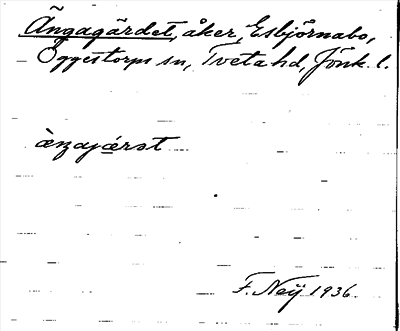 Ängagärdet, åker, Esbjörnabo,
Öggestorps sn, Tveta hd, Jönk. l.
F. Neij 1936.